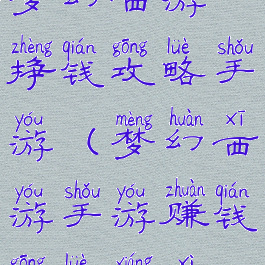 梦幻西游
zhèng qián gōng lüè shǒu
挣钱攻略手
yóu mèng huàn xī
游（梦幻西
yóu shǒu yóu zhuàn qián
游手游赚钱
gōng lüè xiáng xì